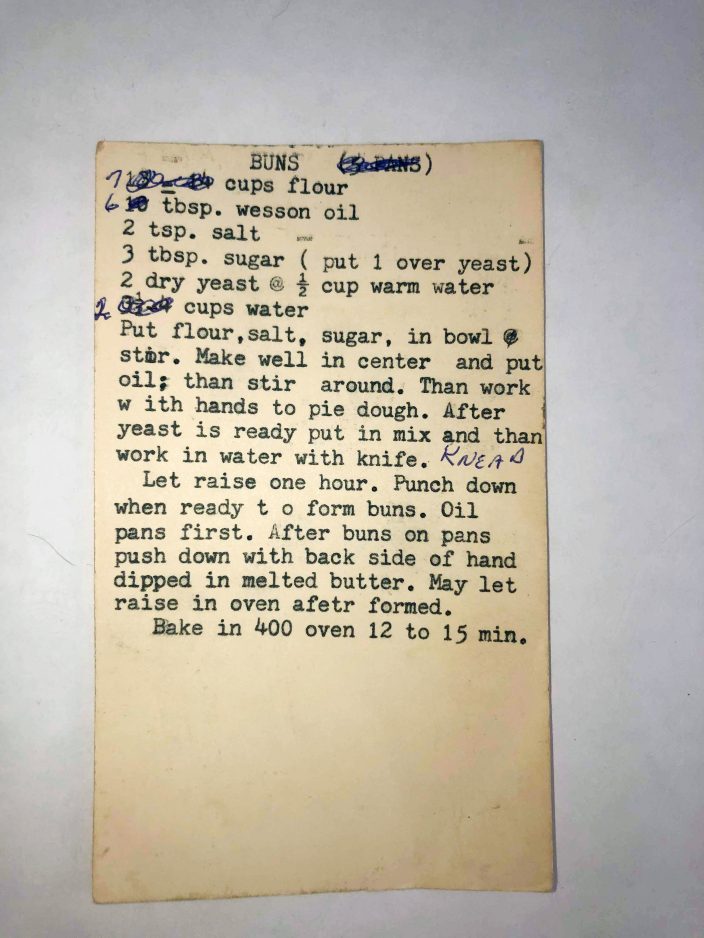 BUNS (3 PANS)
7 cups flour
6 tbsp. wesson oil
2 tsp. salt
3 tbsp. sugar ( put 1 over yeast)
2 dry yeast @ ½ cup warm water
2 cups water
Put flour,salt, sugar, in bowl @
stir. Make well in center and put
oil; than stir around. Than work
w ith hands to pie dough. After
yeast is ready put in mix and than
work in water with knife. KNEAD
Let raise one hour. Punch down
when ready t o form buns. Oil
pans first. After buns on pans
push down with back side of hand
dipped in melted butter. May let
raise in oven afetr formed.
Bake in 400 oven 12 to 15 min.